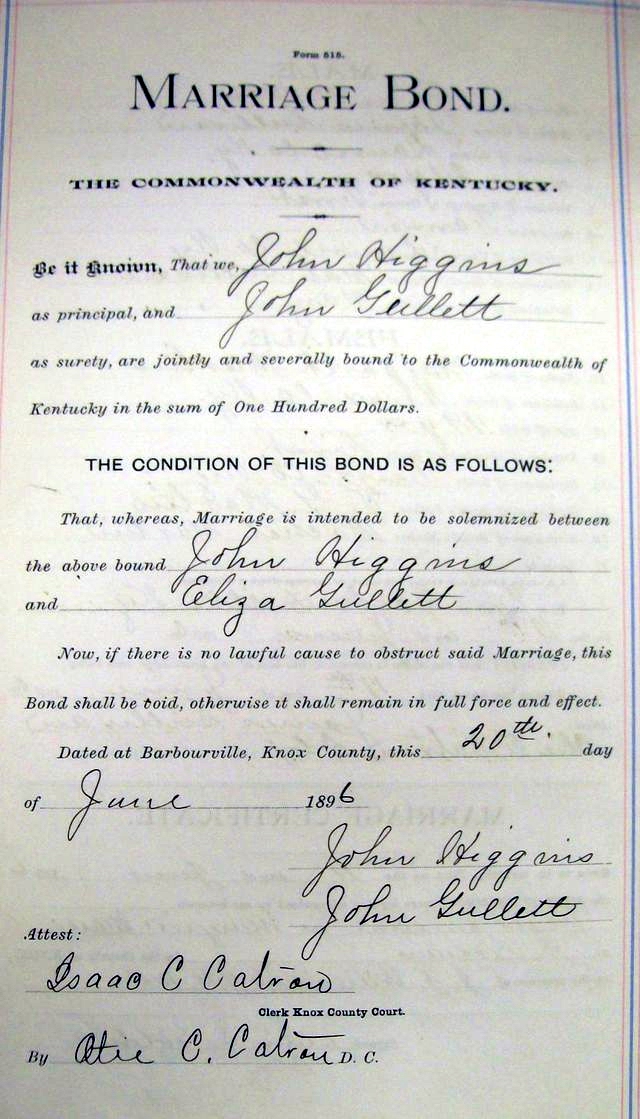 Form 515.
MARRIAGE BOND.
THE COMMONWEALTH OF KENTUCKY.
Be it Known, That we, John Higgins
as principal, and John Gullett
as surety, are jointly and severally bound to the Commonwealth of
Kentucky in the sum of One Hundred Dollars.
THE CONDITION OF THIS BOND IS AS FOLLOWS:
That, whereas, Marriage is intended to be solemnized between
the above bound John Higgins
and Eliza Gullett
Now, if there is no lawful cause to obstruct said Marriage, this
Bond shall be void, otherwise it shall remain in full force and effect.
Dated at Barbourville, Knox County, this 20th. day
of June 1896
John Higgins
John Gullett
Attest:
Isaac C Catron
Clerk Knox County Court.
By Otie C. Catron D. C.